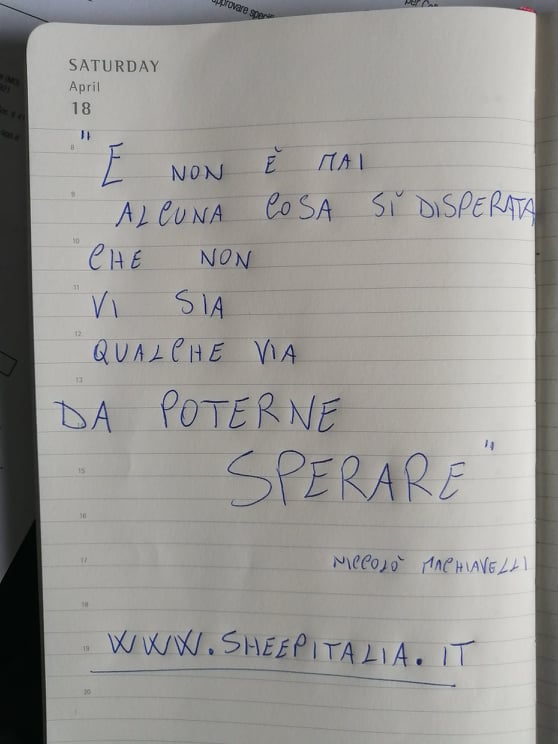 approvare speci
per Co
SATURDAY
April
18
8
" E NON È MAI
9
ALCUNA COSA SÌ DISPERATA
10
CHE NON
11
VI SIA
12
QUALCHE VIA
13
DA POTERNE
15
SPERARE "
16
17
NICCOLÒ MACHIAVELLI
18
19
WWW.SHEEPITALIA.IT
20